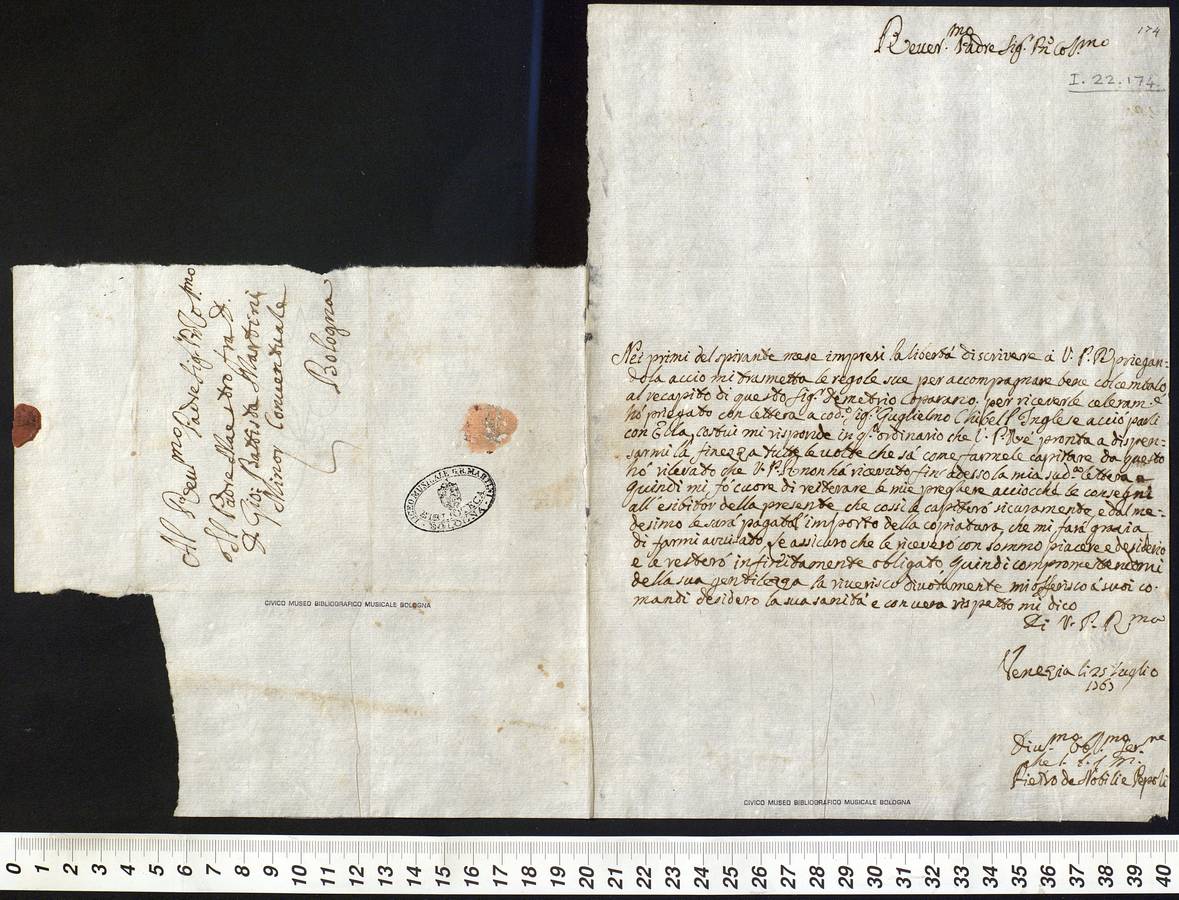 174
Reuer.mo Padre Sig.r Prõ Coll.mo
I. 22. 174.
Nei primi del spirante mese impresi la libertà di scrivere à V. P. R. priegan=
dola acciò mi trasmetta le regole sue per accompagnare bene col cembalo
al recapito di questo Sig.r Demetrio Coparano. per riceverle celeram.e
hò priegato con lettera a cod.o Sig.r Guglielmo Chibell Inglese acciò parli
con Ella, Costui mi risponde in q.to ordinario che V. P. R è pronta a dispen-
sarmi la finezza tutte le volte che sà come farmele capitare da questo
hò rilevato che V. P. R non hà ricevuto fin adesso la mia sud.a lettera
Quindi mi fò cuore di reiterare le mie preghiere acciocchè le consegni
all'esibitor della presente, che così le capiterò sicuramente, e dal me-
desimo le sarà pagato l'importo della copiatura, che mi farà grazia
di farmi avvisato, Le assicuro che le riceverò con sommo piacere e desiderio
e le resterò infinitamente obligato. Quindi
della sua gentilezza la riverisco divotamente mi offerisco à suoi co-
mandi desidero la sua sanità e con vera rispetto mi dico
Di V. P. R.ma
Venezia li 25 Luglio
1763
Diu.mo Obl.mo Ser.re
Pietro de Nobili e Pepoli
Al Reu.mo Padre Sig.r Prõ Col.mo
Il Padre Maestro fra D.
Gio: Battista Martini
Minor Conventuale
Bologna
LICEO MUSICALE G. B. MARTINI
BIBLIOTECA
BOLOGNA
CIVICO MUSEO BIBLIOGRAFICO MUSICALE BOLOGNA
CIVICO MUSEO BIBLIOGRAFICO MUSICALE BOLOGNA
0 1 2 3 4 5 6 7 8 9 10 11 12 13 14 15 16 17 18 19 20 21 22 23 24 25 26 27 28 29 30 31 32 33 34 35 36 37 38 39 40